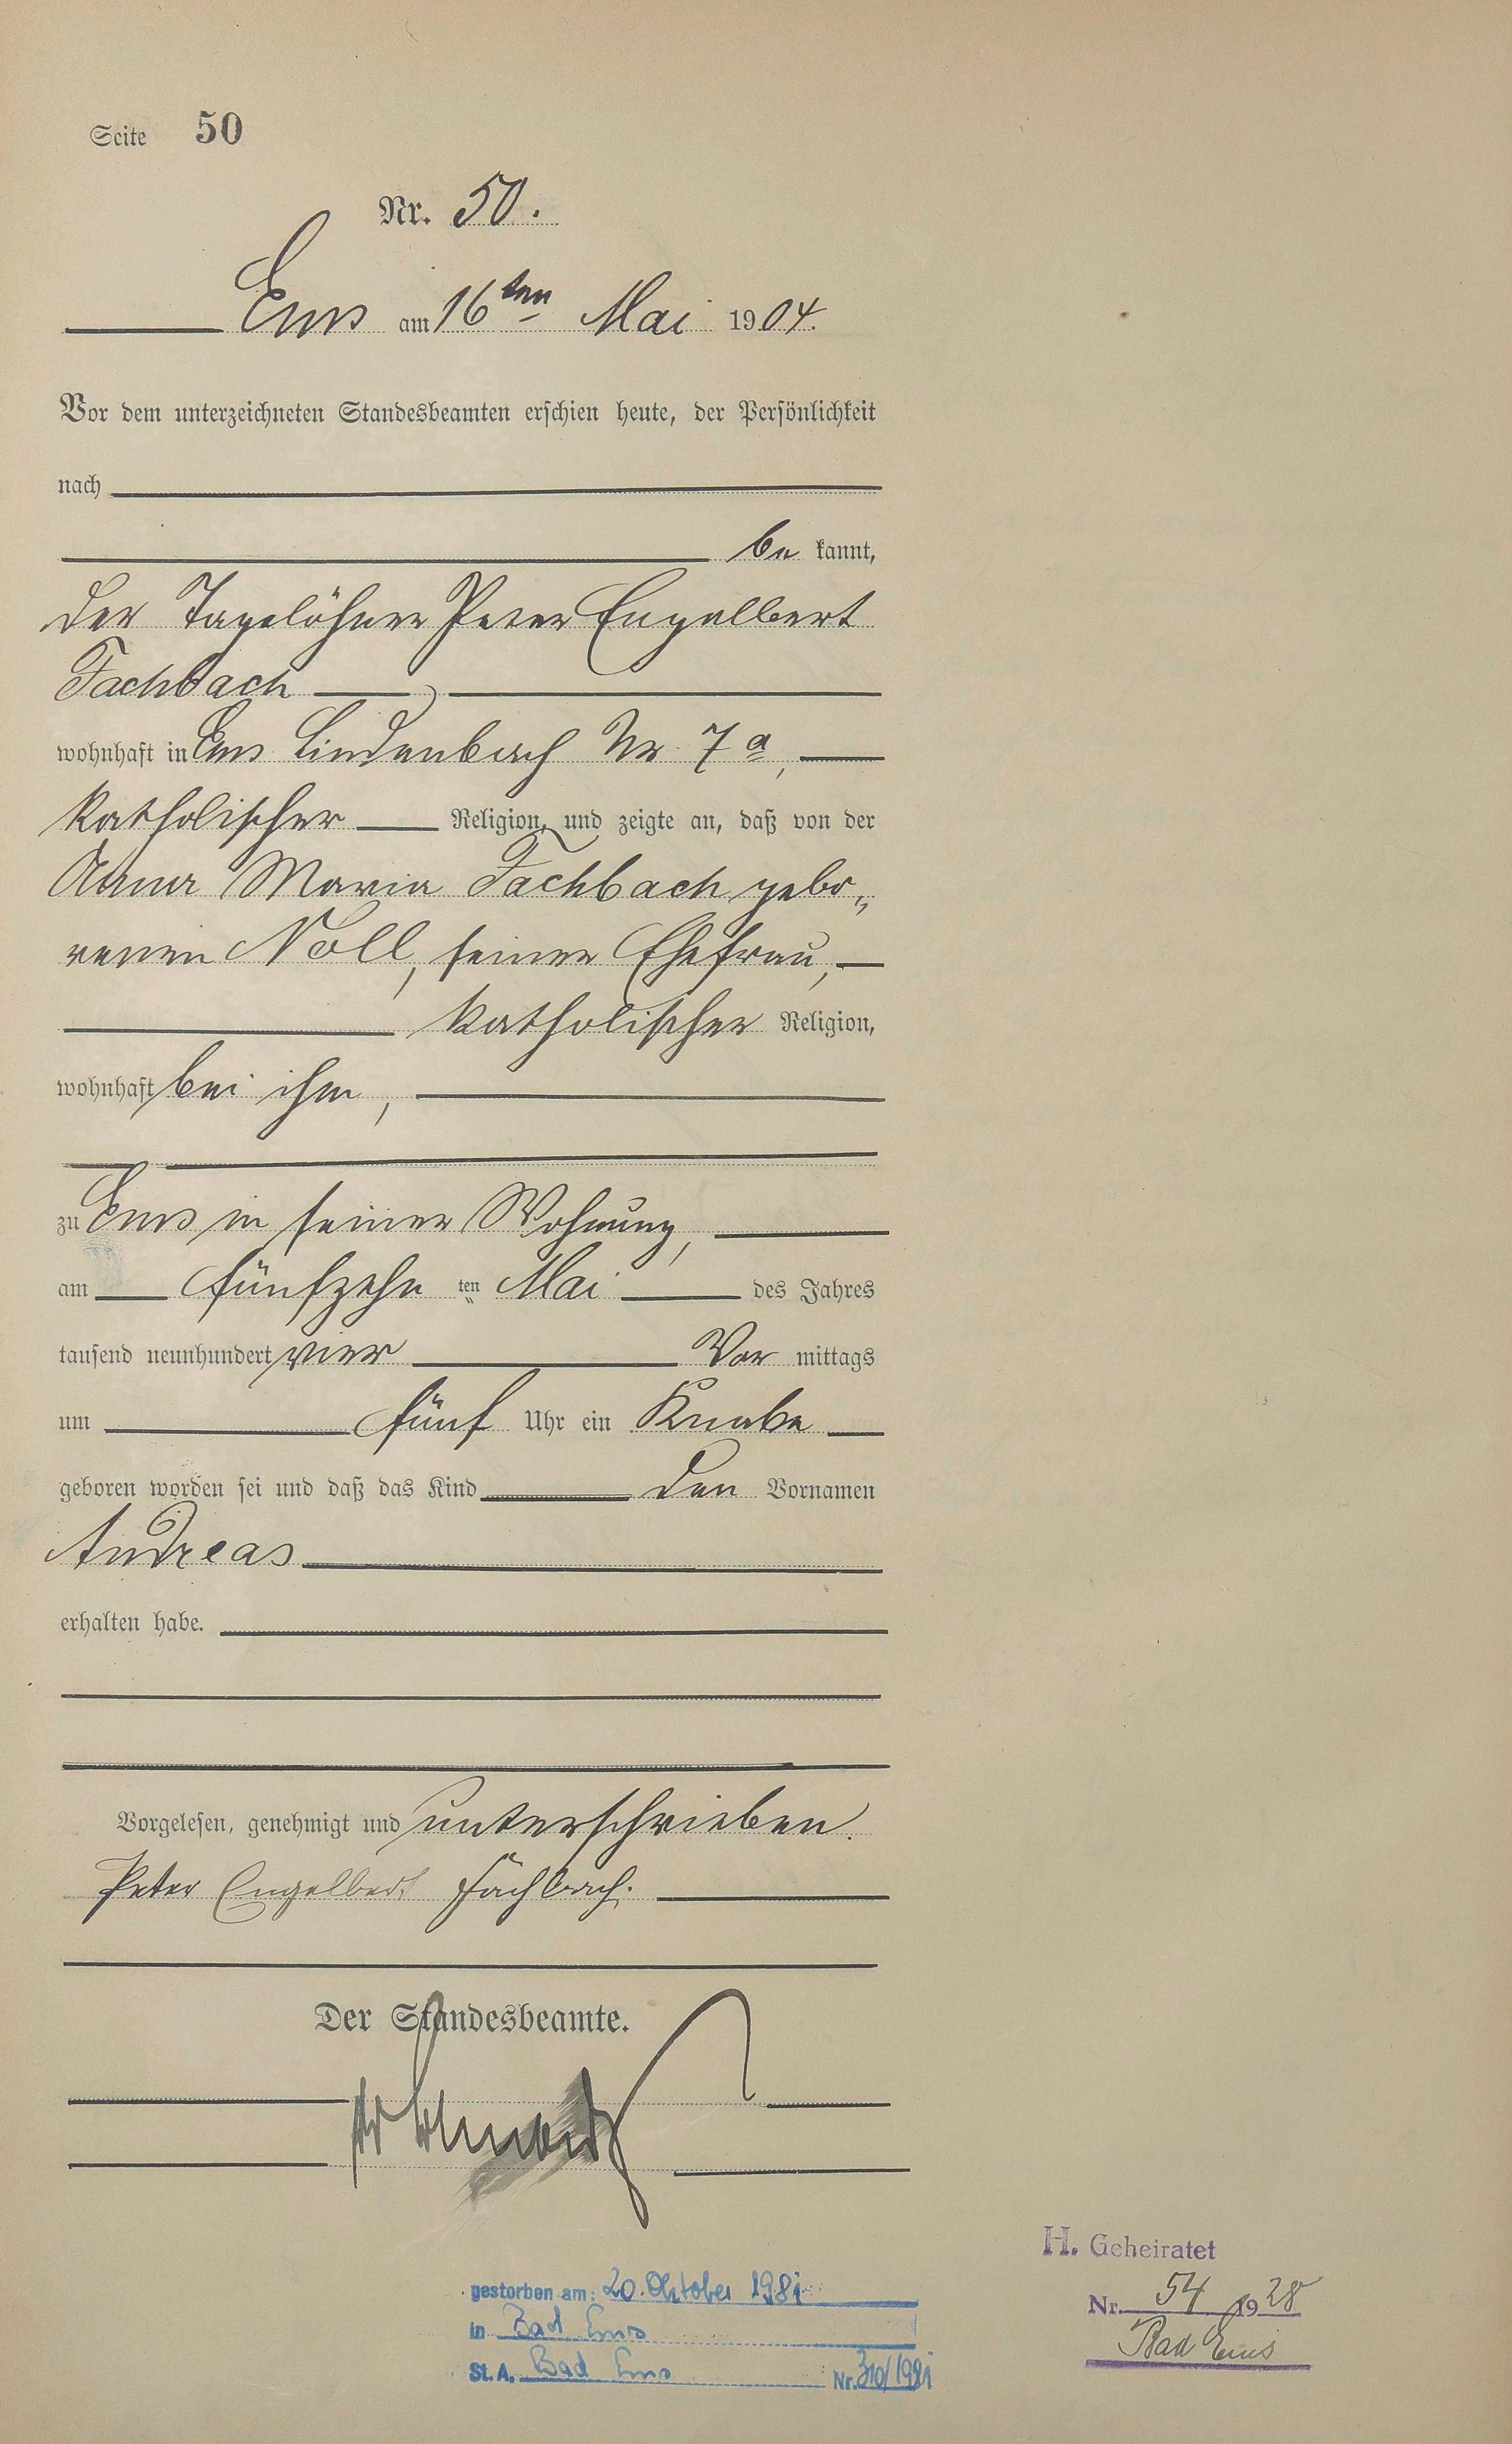 Seite 50
Nr. 50.
Ems am 16ten Mai 1904.
Vor dem unterzeichneten Standesbeamten erschien heute, der Persönlichkeit
nach
be kannt,
der Tagelöhner Peter Engelbert
Fachbach,
wohnhaft in Ems Lindenbach Nr. 7a,
katholischer Religion, und zeigte an, daß von der
Anna Maria Fachbach gebo„
renen Noll, seiner Ehefrau,
katholischer Religion,
wohnhaft bei ihm,
zu Ems in seiner Wohnung,
am fünfzehn ten Mai des Jahres
tausend neunhundert vier Vor mittags
um fünf Uhr ein Knabe
geboren worden sei und daß das Kind den Vornamen
Andreas
erhalten habe.
Vorgelesen, genehmigt und unterschrieben.
Peter Engelbert Fachbach.
Der Standesbeamte.
gestorben am: 20. Oktober 1981
in Bad Ems
St. A. Bad Ems Nr. 310/1981
H. Geheiratet
Nr. 54 1928
Bad Ems